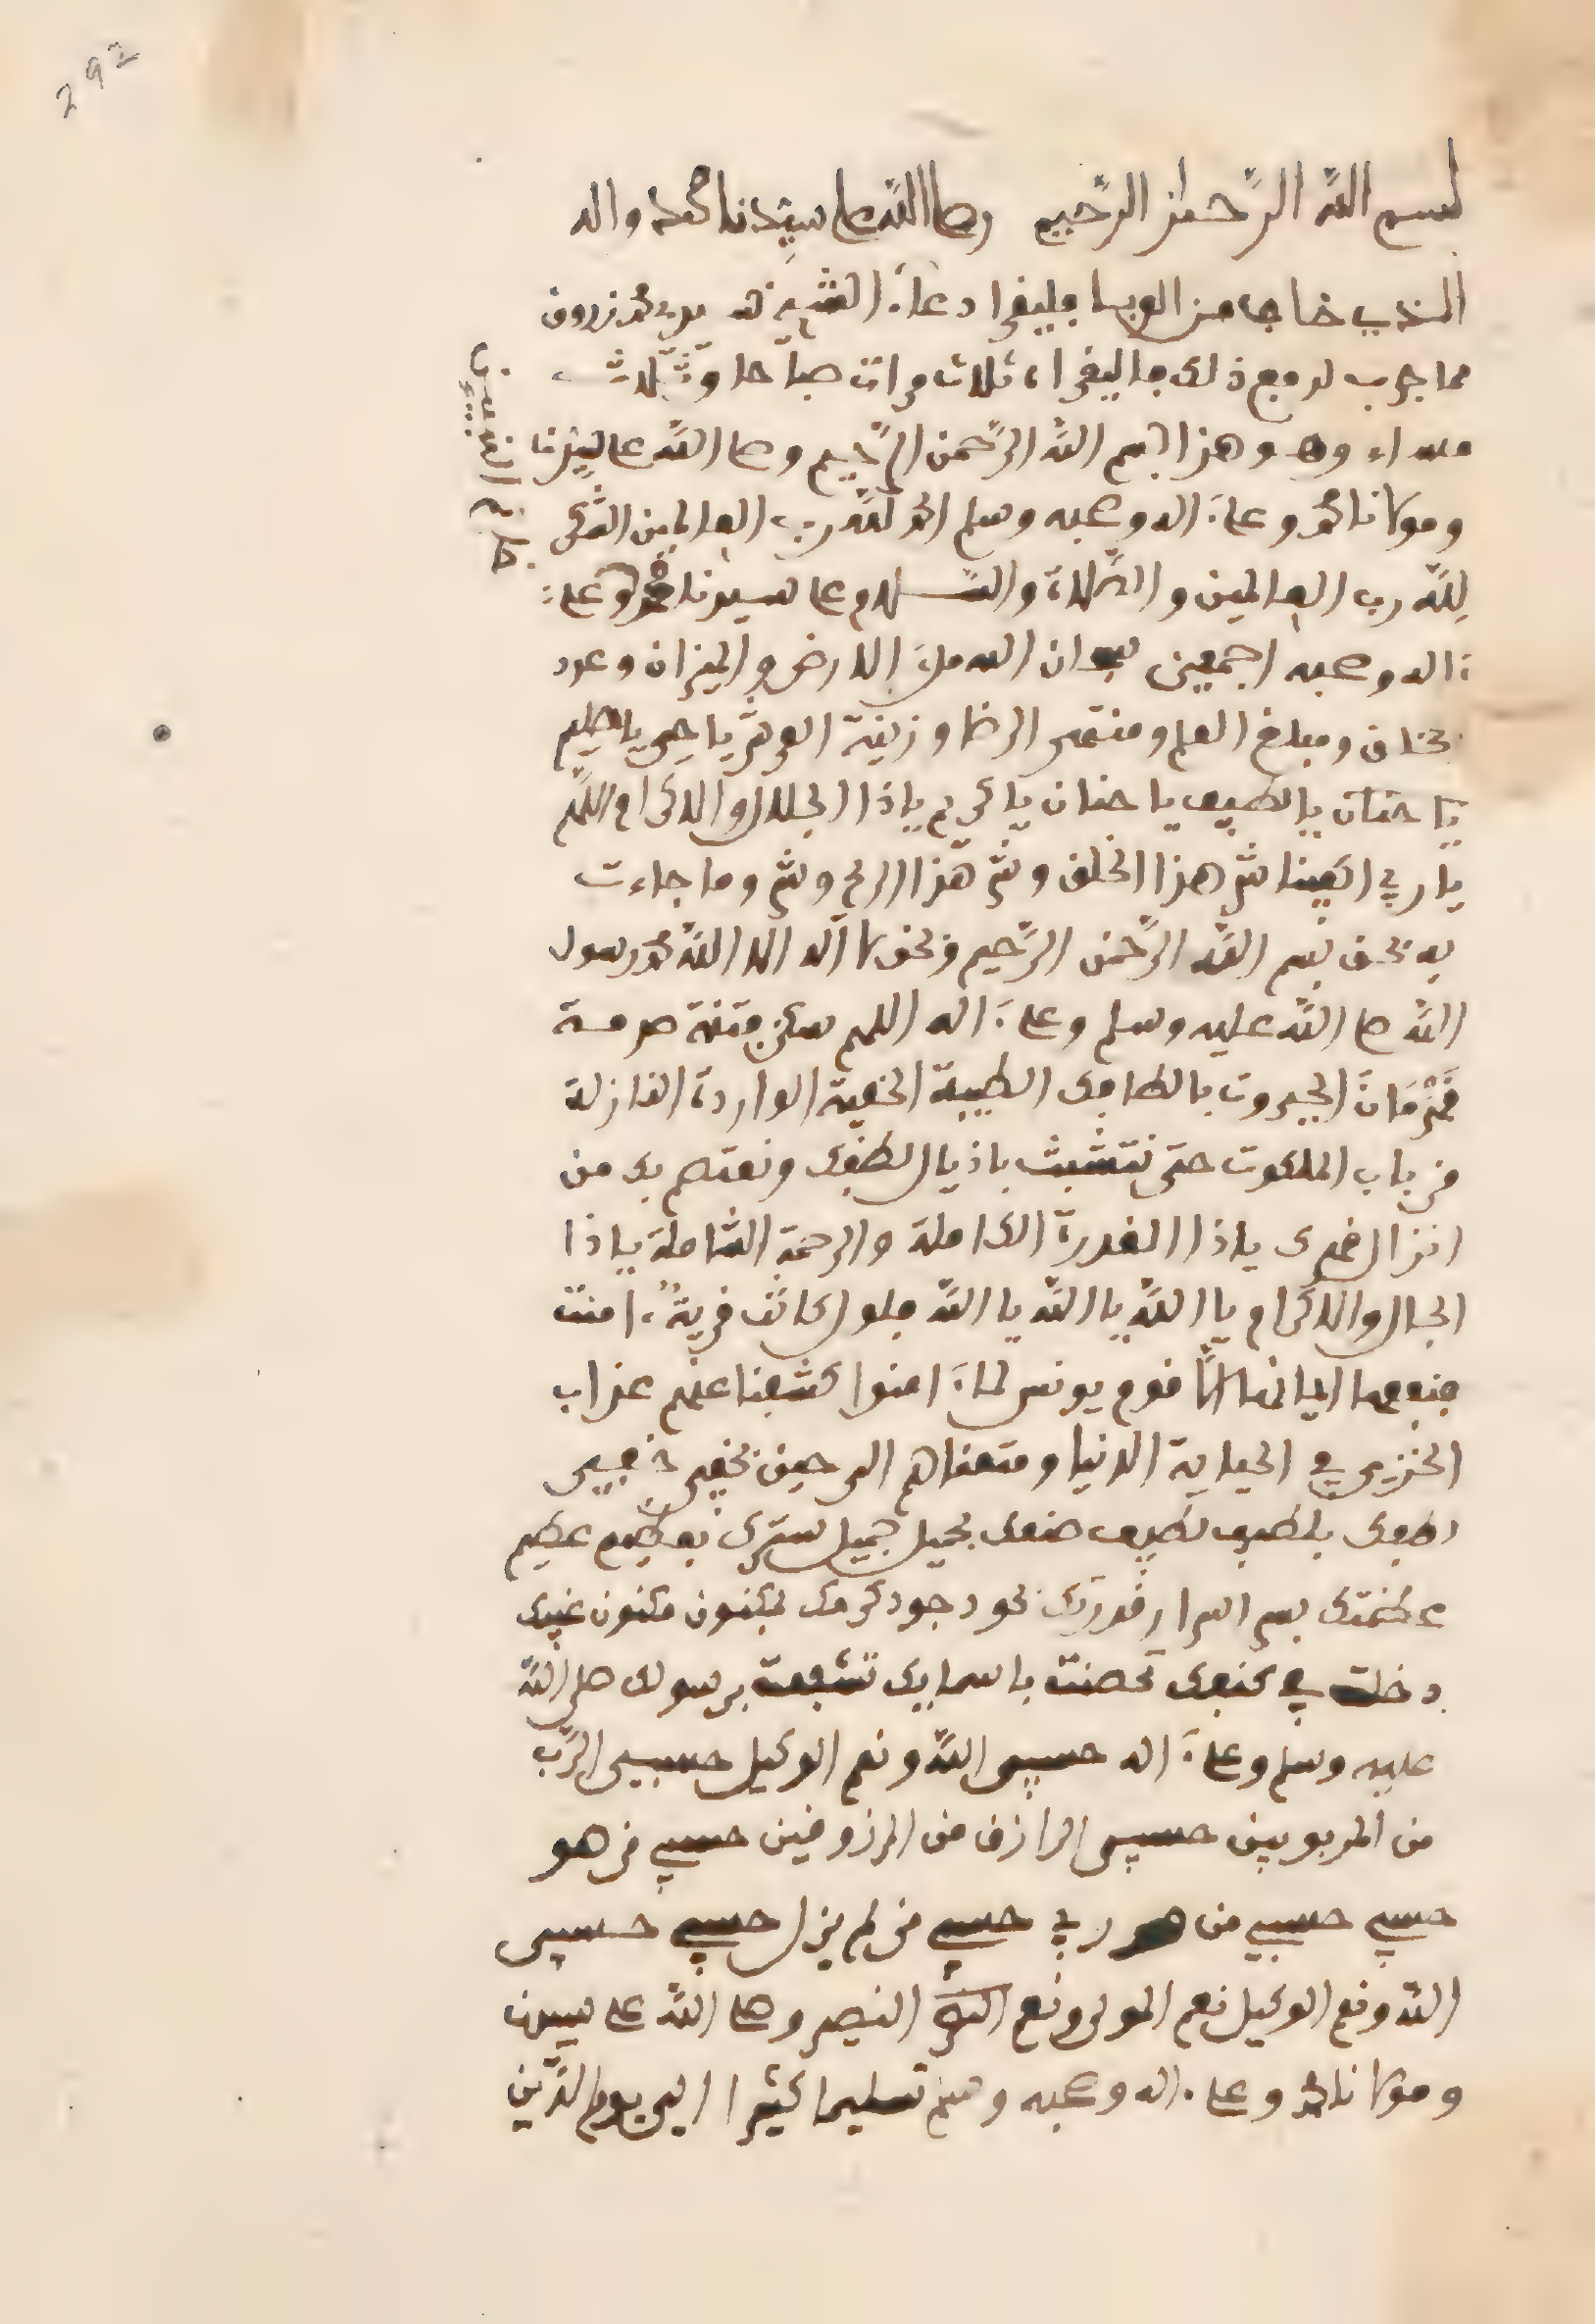 292
بسم الله الرحمن الرحيم وصلى الله على سيدنا محمد واله
الذي خاف من الوبا فليقرا دعاء الشيخ زروق
مما جرب لدفع ذلك فاليقراه ثلاث مرات صباحا وثلاث
مساء وهو هذا بسم الله الرحمن الرحيم وصلى الله على سيدنا
ومولانا محمد وعلى اله وصحبه وسلم الحمد لله رب العالمين الشكر
لله رب العالمين والصلاة والسلام على سيدنا محمد وعلى
اله وصحبه اجمعين سبحان الله ملء الارض والميزان وعدد
الخلق ومبلغ العلم ومنتهى الرضا وزينة العرش يا حي يا حليم
يا حنان يا لطيف يا حنان يا كريم يا ذا الجلال والاكرام اللهم
يا ربي اكفينا شر هذا الخلق وشر هذا الريح وشر وما جاءت
به بحق بسم الله الرحمن الرحيم وبحق لا اله الا الله محمد رسول
الله صلى الله عليه وسلم وعلى اله اللهم سكن فتنة صرمة
قهرمان الجبروت بالطافك الطيبة الخفية الواردة النازلة
من باب الملكوت حتى نتشبث باذيال لطفك ونعتصم بك من
انزال قهرك يا ذا القدرة الكاملة والرحمة الشاملة يا ذا
الجلال والاكرام يا الله يا الله يا الله فلولا كانت قرية امنت
فنفعها ايمانها الا قوم يونس لما امنوا كشفنا عنهم عذاب
الخزي في الحياة الدنيا ومتعناهم الى حين بخفي خفي
لطفك بلطيف لطيف صنعك بجميل جميل سترك بعظيم عظيم
عظمتك بسر اسرار قدرتك بجود جود كرمك بمكنون مكنون غيبك
دخلت في كنفك تحصنت باسمايك تشفعت برسولك صلى الله
عليه وسلم وعلى اله حسبي الله ونعم الوكيل حسبي الرب
من المربوبين حسبي الرازق من المرزوقين حسبي من هو
حسبي حسبي من هو ربي حسبي من لم يزل حسبي حسبي
الله ونعم الوكيل نعم المولى ونعم النصير وصلى الله على سيدنا
ومولانا محمد وعلى اله وصحبه وسلم تسليما كثيرا الى يوم الدين